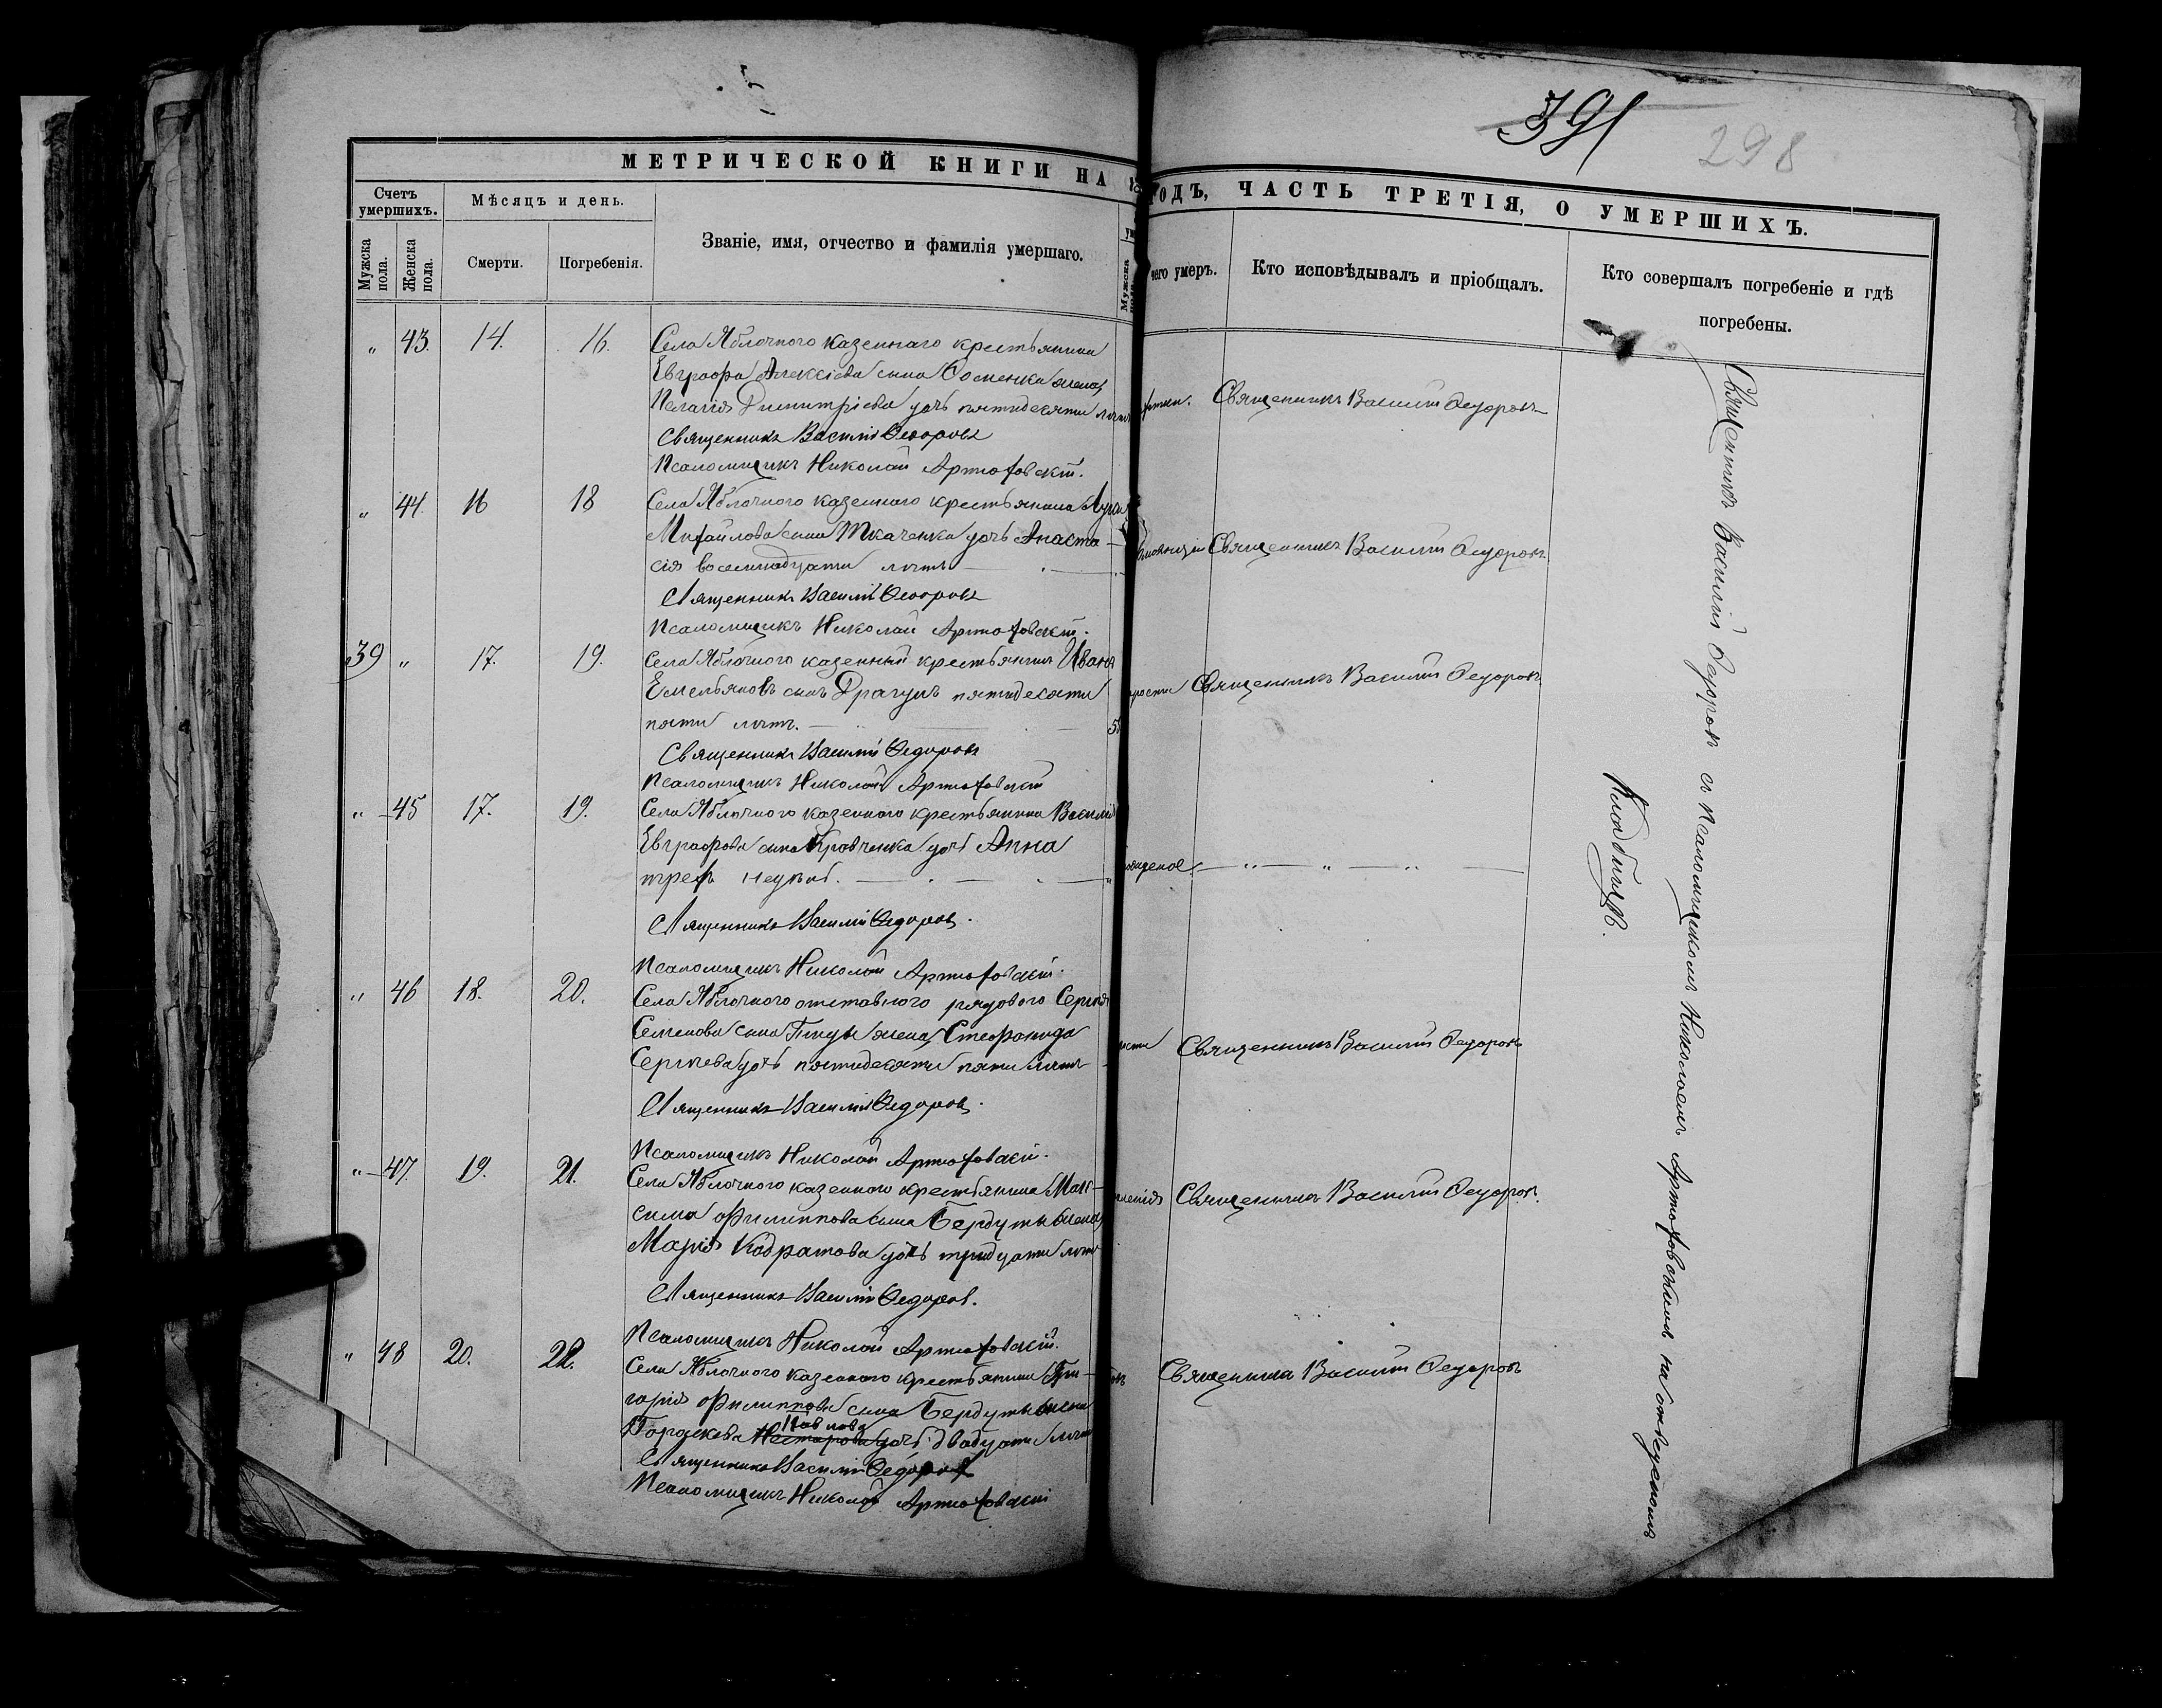 391
298
МЕТРИЧЕСКОЙ КНИГИ НА
ГОДЪ, ЧАСТЬ ТРЕТІЯ, О УМЕРШИХЪ.
Счетъ умершихъ.
Мѣсяцъ и день.
Мужска пола.
Женска пола.
Смерти.
Погребенія.
Званіе, имя, отчество и фамилія умершаго.
Мужска
чего умеръ.
Кто исповѣдывалъ и пріобщалъ.
Кто совершалъ погребеніе и гдѣ
погребены.
" 43. 14. 16. Села Яблочного казеннаго крестьянина
Евграфа Алексіева сына Соменка жена
Пелагія Димитріева дочь пятидесяти лѣтъ
Священникъ Василій Ѳеодоровъ
Священникъ Василій Ѳедоровъ
Псаломщикъ Николай Артюховскій.
" 44. 16 18 Села Яблочного казенного крестьянина Луки
Михайлова сына Ткаченка дочь Анаста-
сія восемнадцати лѣтъ
Священникъ Василій Ѳедоровъ
Священникъ Василій Ѳеодоровъ
Псаломщикъ Николай Артюховскій.
39 " 17. 19. Села Яблочного казенный крестьянинъ Иванъ
Емельяновъ сынъ Драгунъ пятидесяти
пяти лѣтъ.
Священникъ Василій Ѳедоровъ
Священникъ Василій Ѳедоровъ
Псаломщикъ Николай Артюховскій
" 45 17. 19. Села Яблочного казенного крестьянина Василія
Евграфова сына Кравченка дочь Анна
трехъ недѣль.
Священникъ Василій Ѳедоровъ.
Псаломщикъ Николай Артюховскій.
" 46 18. 20. Села Яблочного отставного рядового Сергѣя
Семенова сына жена Стефанида
Сергѣева дочь пятидесяти пяти лѣтъ
Священникъ Василій Ѳедоровъ
Священникъ Василій Ѳедоровъ.
Псаломщикъ Николай Артюховскій.
" 47. 19. 21. Села Яблочного казенного крестьянина Мак-
сима Филиппова сына Бердуты жена
Марія Кодратова дочь тридцати лѣтъ
Священникъ Василій Ѳедоровъ.
Священникъ Василій Ѳедоровъ.
Псаломщикъ Николай Артюховскій.
" 48 20. 22. Села Яблочного казенного крестьянина Гри-
горія Филиппова сына Бердуты жена
Павлова
дочь двадцати лѣтъ
Священникъ Василій Ѳедоровъ
Священникъ Василій Ѳедоровъ
Псаломщикъ Николай Артюховскій
Священникъ Василій Ѳедоровъ съ псаломщикомъ Николаемъ Артюховскимъ на отведенномъ
кладбищѣ.